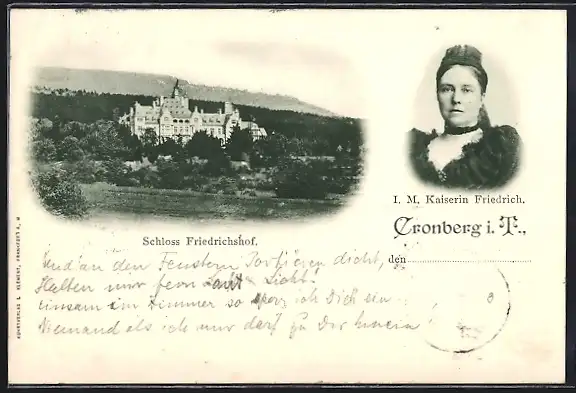 I. M. Kaiserin Friedrich.
Cronberg i. T.,
Schloss Friedrichshof.
den
Und an den Fenstern dicht,
Halten nur fern Laut Licht,
einsam im Zimmer so ich Dich ein
Niemand als ich nur darf zu Dir hinein
KUNSTVERLAG L. KLEMENT, FRANKFURT A. M